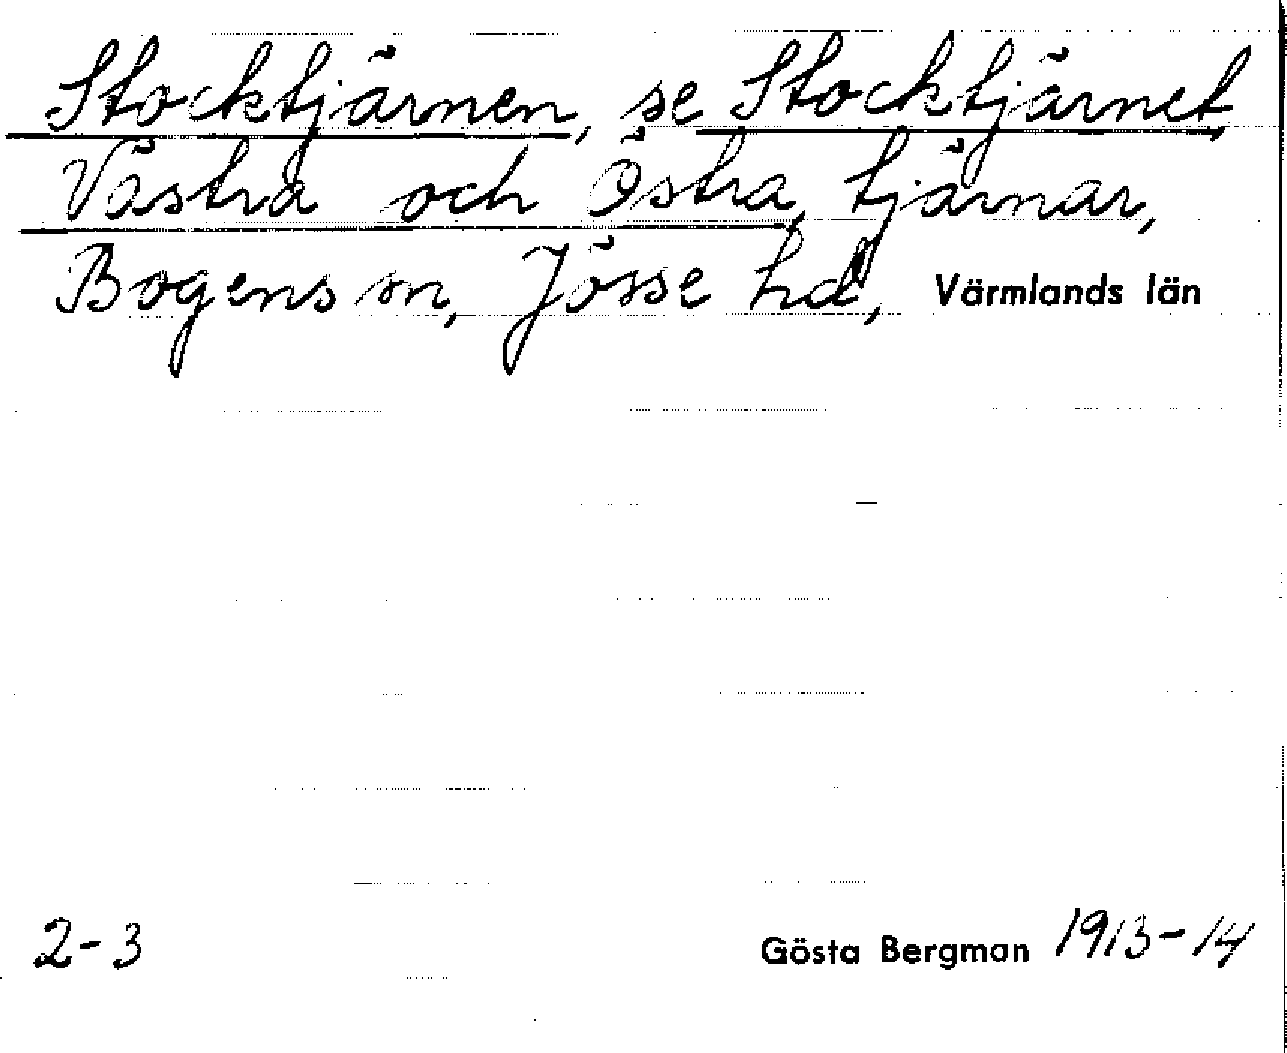 Stocktjärnen, se Stocktjärnet,
Västra och Östra, tjärnar,
Bogens sn, Jösse hd, Värmlands län
2-3 Gösta Bergman 1913-14